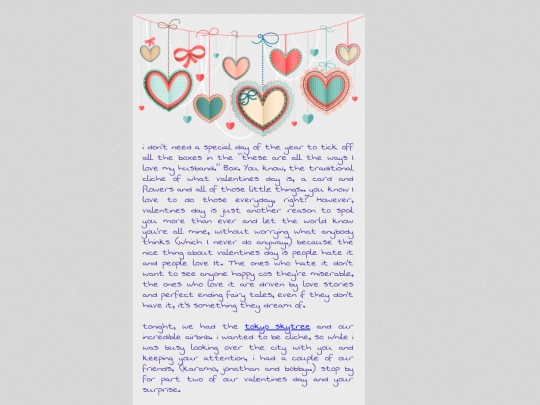 i don't need a special day of the year to tick off
all the boxes in the "these are all the ways I
love my husband." Box. You know, the traditional
cliche of what valentines day is, a card and
flowers and all of those little things.. you know I
love to do those everyday, right? However,
valentines day is just another reason to spoil
you more than ever and let the world know
you're all mine, without worrying what anybody
thinks (which I never do anyway,) because the
nice thing about valentines day is people hate it
and people love it. The ones who hate it don't
want to see anyone happy cos they're miserable,
the ones who love it are driven by love stories
and perfect ending fairy tales, even if they don't
have it, it's something they dream of.
tonight, we had the tokyo skytree and our
incredible airbnb. i wanted to be cliche, so while i
was busy looking over the city with you and
keeping your attention, i had a couple of our
friends, (karamo, jonathan and bobby..) stop by
for part two of our valentines day and your
surprise.